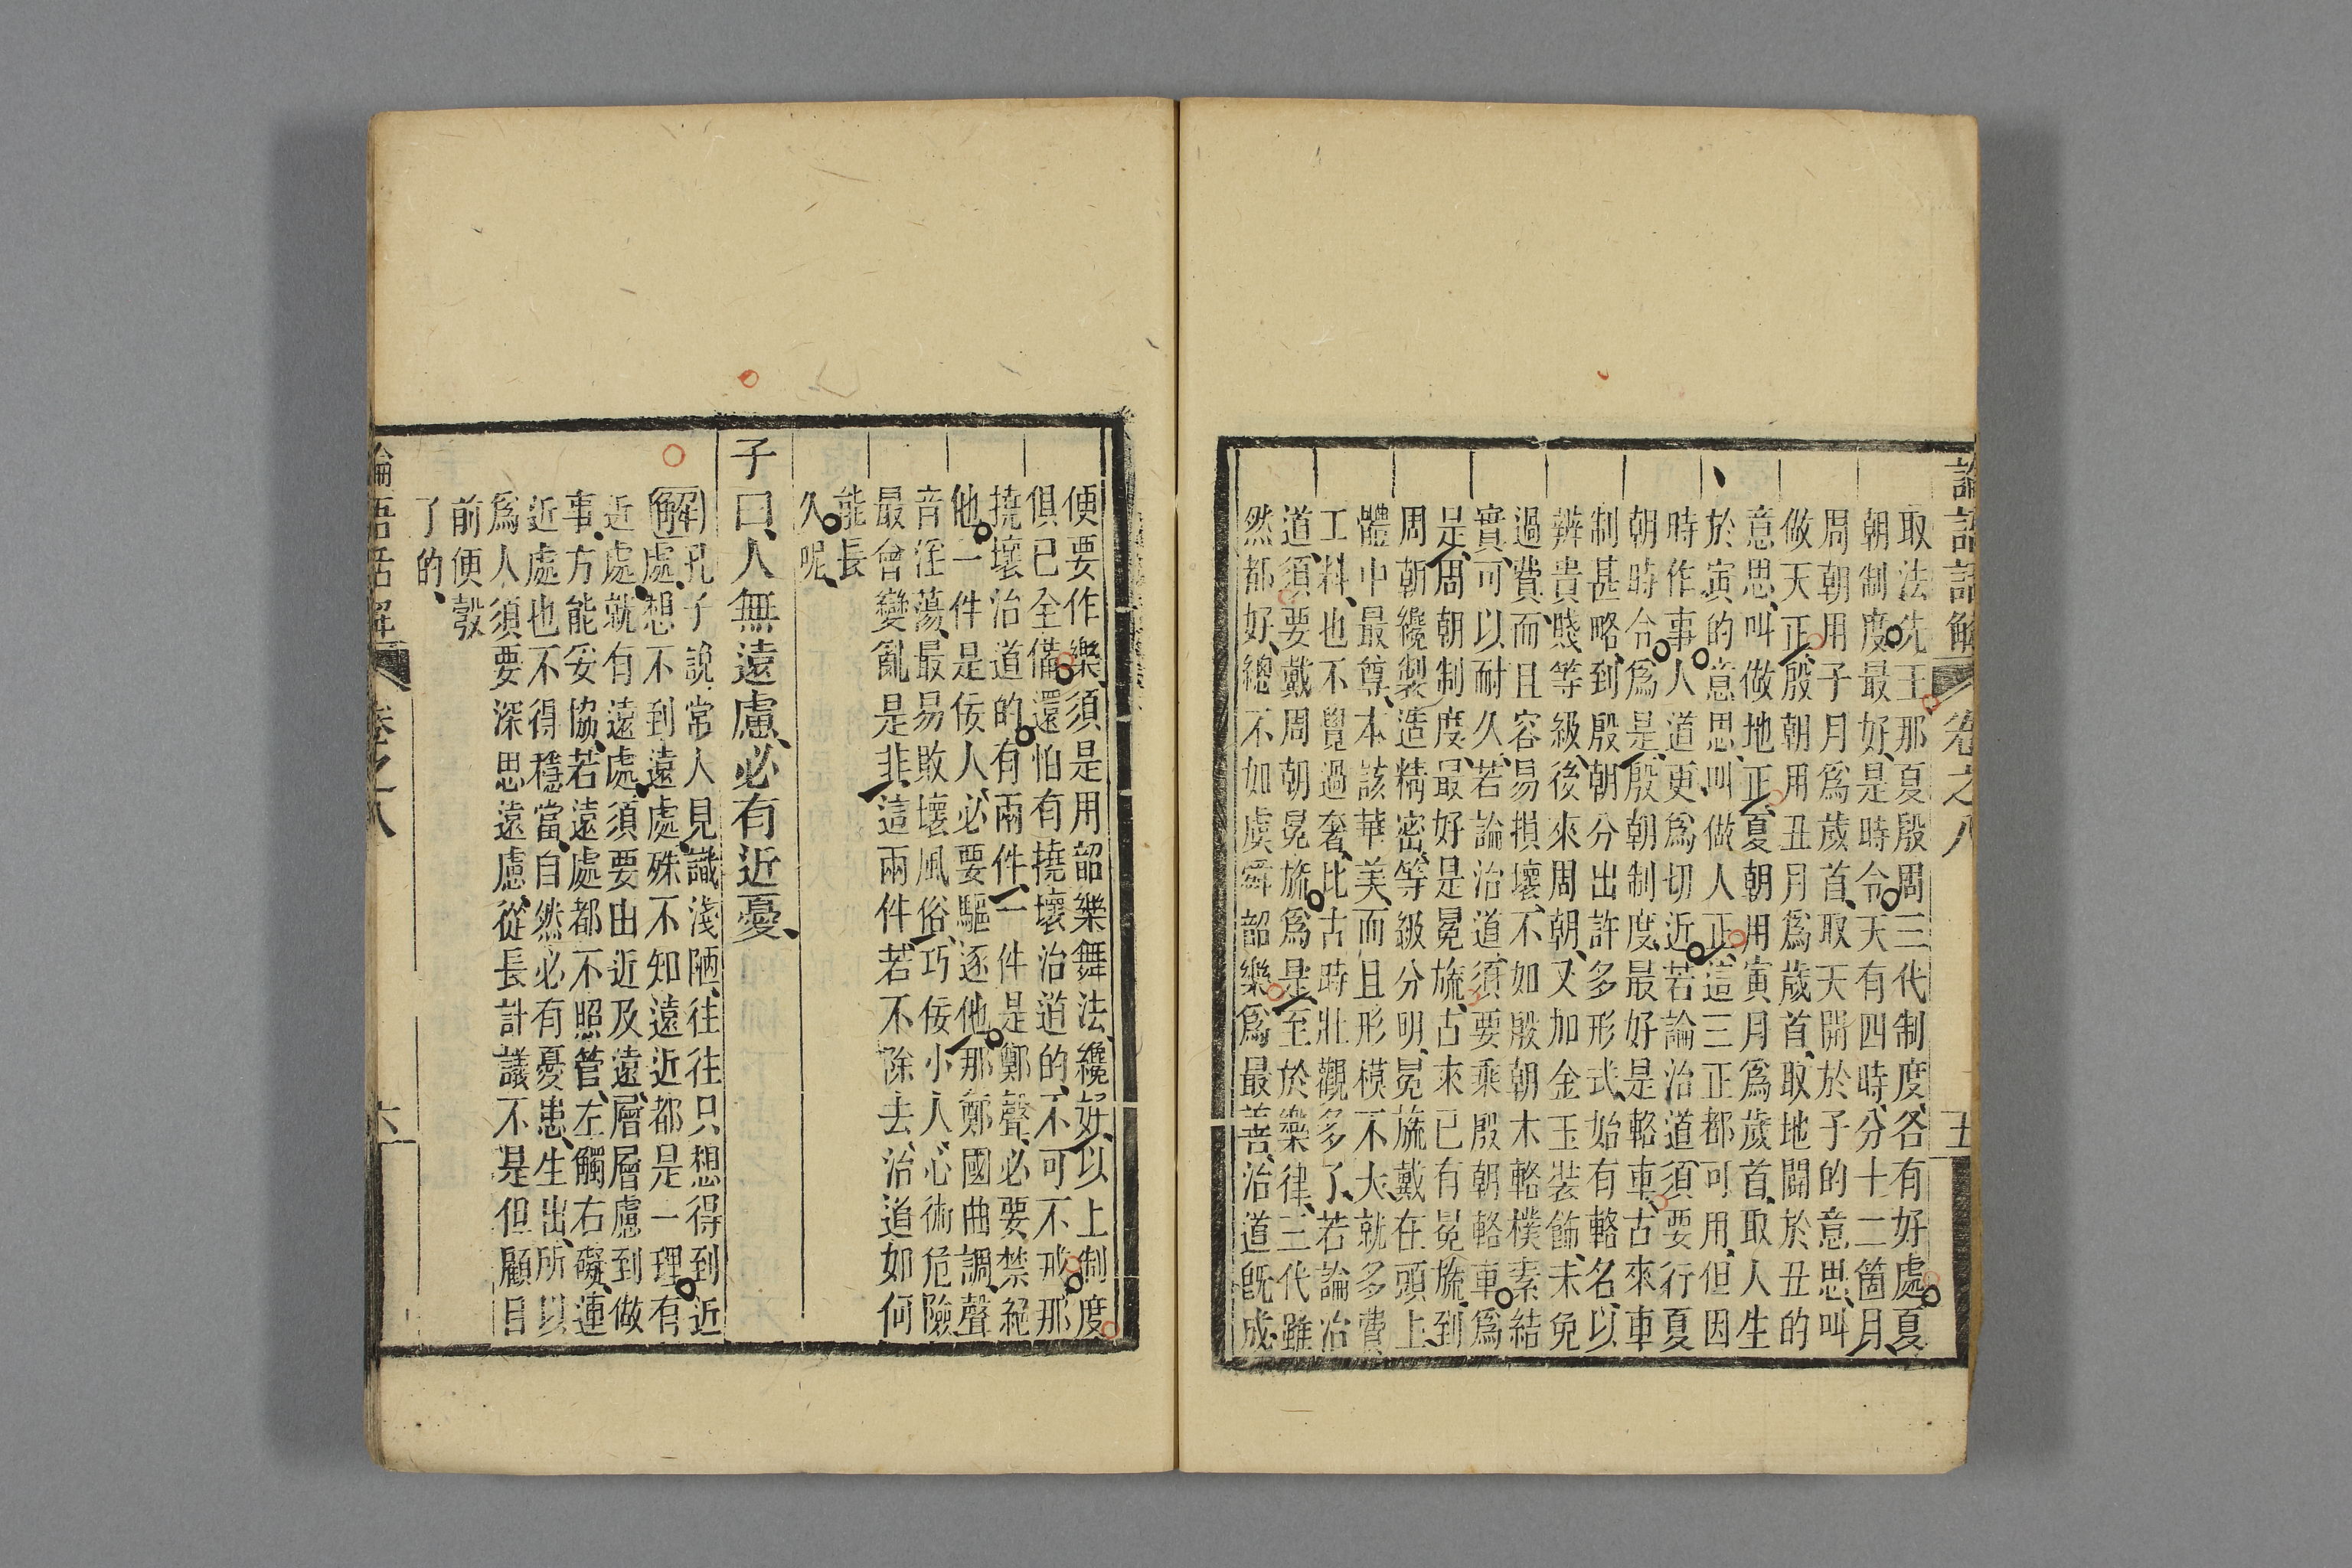 論語話解 卷之八 五
取法先王那夏殷周三代制度、各有好處夏
朝制度最好、是時令天有四時、分十二箇月、
周朝用子月爲歲首、取天開於子的意思、叫
做天正、殷朝用丑月爲歲首、取地闢於丑的
意思、叫做地正、夏朝用寅月爲歲首、取人生
於寅的意思、叫做人正、這三正都可用、但因
時作事人道更爲切近若論治道、須要行夏
朝時令爲是、殷朝制度、最好是輅車、古來車
制甚略、到殷朝分出許多形式、始有輅名、以
辨貴賤等級、後來周朝、又加金玉裝飾、未免
過費、而且容易損壞、不如殷朝木輅樸素結
實、可以耐久、若論治道、須要乘殷朝輅車爲
是、周朝制度、最好是冕旒、古來已有冕旒、到
周朝纔製造精密、等級分明、冕旒戴在頭上、
體中最尊、本該華美、而且形模不大、就多費
工料、也不覺過奢、比古時壯觀多了、若論治
道、須要戴周朝冕旒爲是、至於樂律、三代雖
然都好、總不如虞舜韶樂爲最善、治道旣成、
便要作樂、須是用韶樂舞法、纔好、以上制度
俱已全備、還怕有撓壞治道的、不可不戒、那
撓壞治道的、有兩件、一件是鄭聲、必要禁絕
他、一件是佞人、必要驅逐他、那鄭國曲調、聲
音淫蕩、最易敗壞風俗、巧佞小人、心術危險
最會變亂是非、這兩件若不除去、治道如何
能長
久呢、
子曰、人無遠慮、必有近憂、
解 孔子說、常人見識淺陋、往往只想得到近
處、想不到遠處、殊不知遠近都是一理、有
近處、就有遠處、須要由近及遠、層層慮到做
事、方能妥協、若遠處都不照管、左觸右礙、連
近處也不得穩當、自然必有憂患、生出、所以
爲人須要深思遠慮、從長計議、不是但顧目
前便彀
了的、
論語話解 卷之八 六